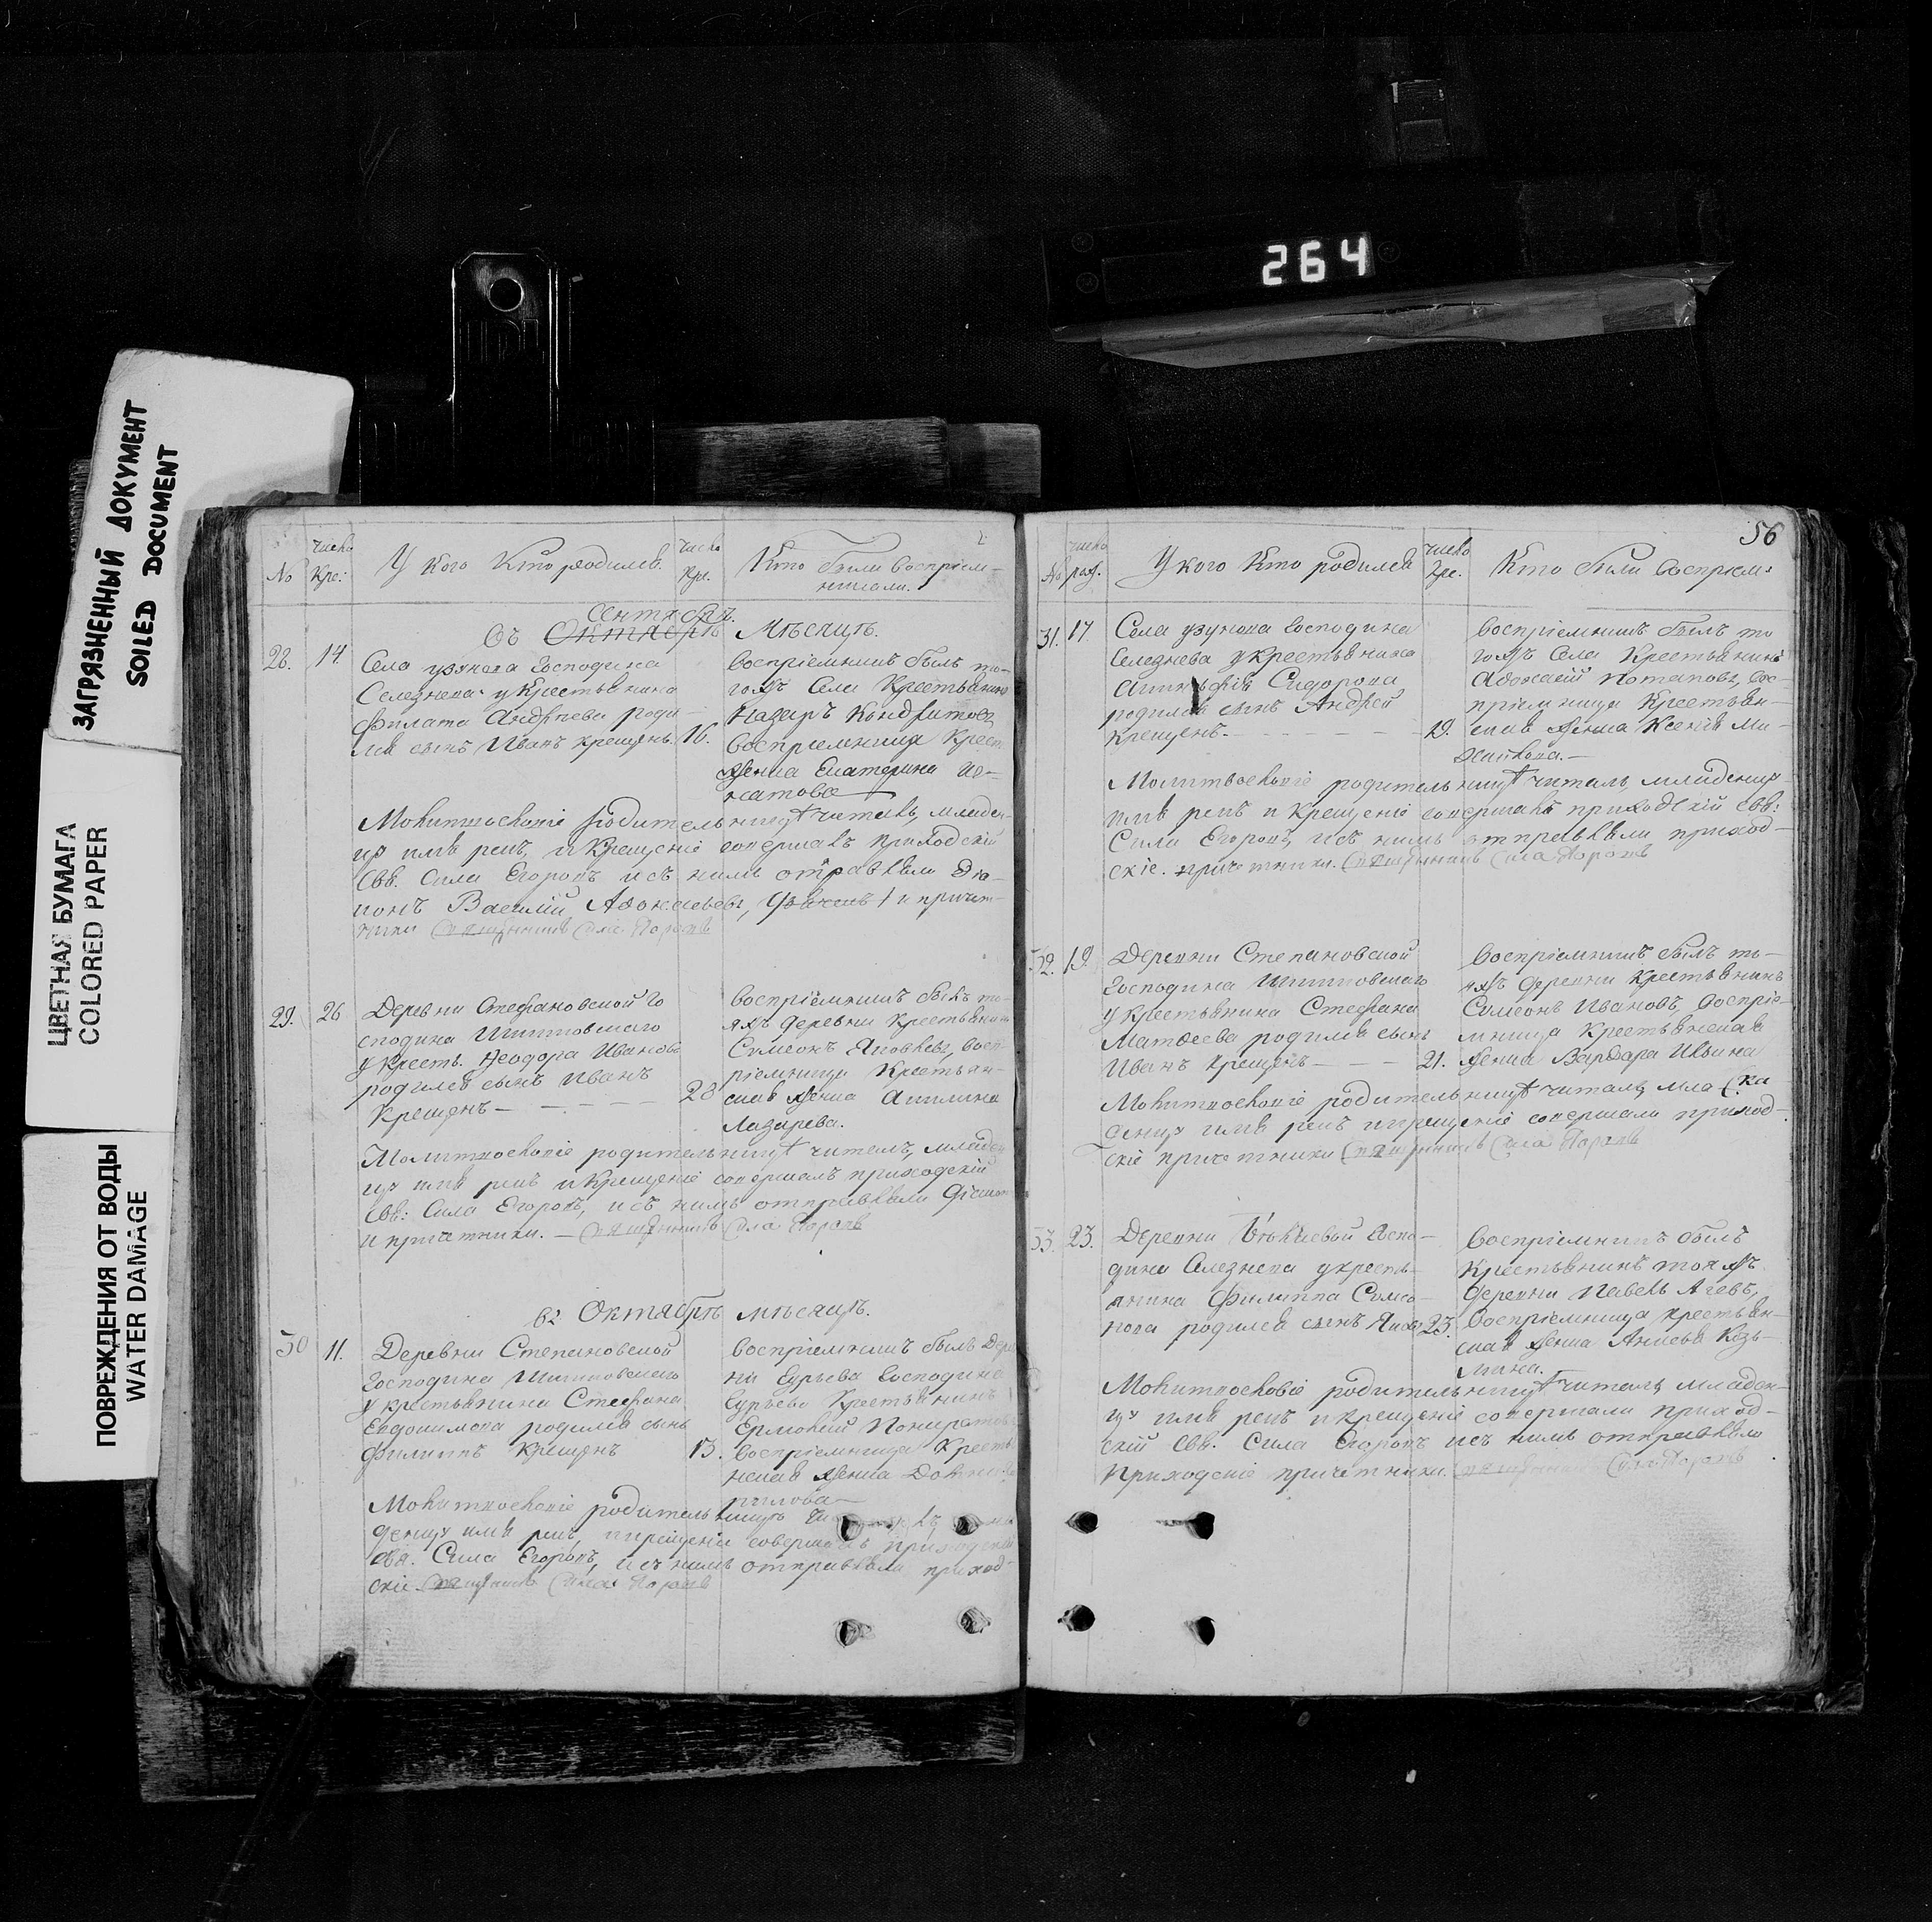 264
ЗАГРЯЗНЕННЫЙ ДОКУМЕНТ
SOILED DOCUMENT
ЦВЕТНАЯ БУМАГА
COLORED PAPER
ПОВРЕЖДЕНИЯ ОТ ВОДЫ
WATER DAMAGE
No
число Кре:
У кого Кто родился.
число Кр.
Кто были восприем-
никами.
Сентябрѣ.
Въ Октябрѣ Мѣсяцѣ.
28. 14.
Села узунова Господина
Селезнева у Крестьянина
Филата Андреева роди-
лся сынъ Иванъ крещенъ. 16.
Воспріемникъ былъ то-
гожъ Села Крестьянинъ
Назаръ Кондратовъ
воспріемница Крест.
жонка Екатерина
Молитвословіе родительницѣ читалъ, младен-
цу имя рекъ, и Крещеніе совершалъ приходскій
Свя. Сила Егоровъ и съ нимъ отправляли діа-
конъ Василій Афонасьевъ, и причет-
ники
29. 26
Деревни Стефановской Го
сподина
у Крест. Феодора Иванова
родился сынъ Иванъ
Крещенъ — 28
Воспріемникъ былъ то-
яжъ деревни Крестьянинъ
Симеонъ Яковлевъ, восп-
ріемница Крестьян-
ская жонка Акилина
Лазарева.
Молитвословіе родительницѣ читалъ, младен
цу имя рекъ и Крещеніе совершалъ приходскій
Свя: Сила Егоровъ, и съ нимъ отправляли діакон
и причетники. —
въ Октябрѣ мѣсяцѣ.
30 11.
Деревни Степановской
Господина
у крестьянина Стефана
Евдокимова родился сынъ
Филиппъ Крещенъ 13.
Воспріемникъ былъ Дере
ни Гурьева Господина
Гурьева Крестьянинъ
воспріемница Крестья
нская жонка
Молитвословіе родительницѣ
денцу имя рекъ, и крещеніе совершалъ приходскій
Свя. Сила Егоровъ, и съ нимъ отправляли приход-
скіе.
56
No
число рож.
У кого Кто родился
число Кре.
Кто были воспріем:
31. 17.
Села узунова Господина
Селезнева у крестьянина
Сидорова
родился сынъ Андрей
крещенъ. — 19.
Воспріемникъ былъ то
гожъ Села Крестьянинъ
Афонасій Потаповъ, вос-
пріемница Крестьян-
ская жонка Ксенія
Молитвословіе родительницѣ читалъ, младенцу
имя рекъ и Крещеніе совершалъ приходскій Свя:
Сила Егоровъ, и съ нимъ отправляли приход-
скіе. причетники.
32. 19.
Деревни Степановской
Господина
у крестьянина Стефана
Матвеева родился сынъ
Иванъ Крещенъ — 21.
Воспріемникъ былъ то-
яжъ деревни Крестьянинъ
Симеонъ Ивановъ, воспріе-
мница Крестьянская
жонка Варвара Ильина
Молитвословіе родительницѣ читалъ, мла
денцу имя рекъ и крещеніе совершали приход-
скіе причетники
33. 23.
Деревни Госпо-
дина Селезнева у крест-
янина Филиппа
родился сынъ 25.
Воспріемникъ былъ
Крестьянинъ тояжъ
деревни Павелъ
воспріемница крестьян-
ская жонка Анисья Козь-
мина.
Молитвословіе родительницѣ читалъ, младен-
цу имя рекъ и крещеніе совершали приход-
скій Свя. Сила Егоровъ и съ нимъ отправляли
Приходскіе причетники.